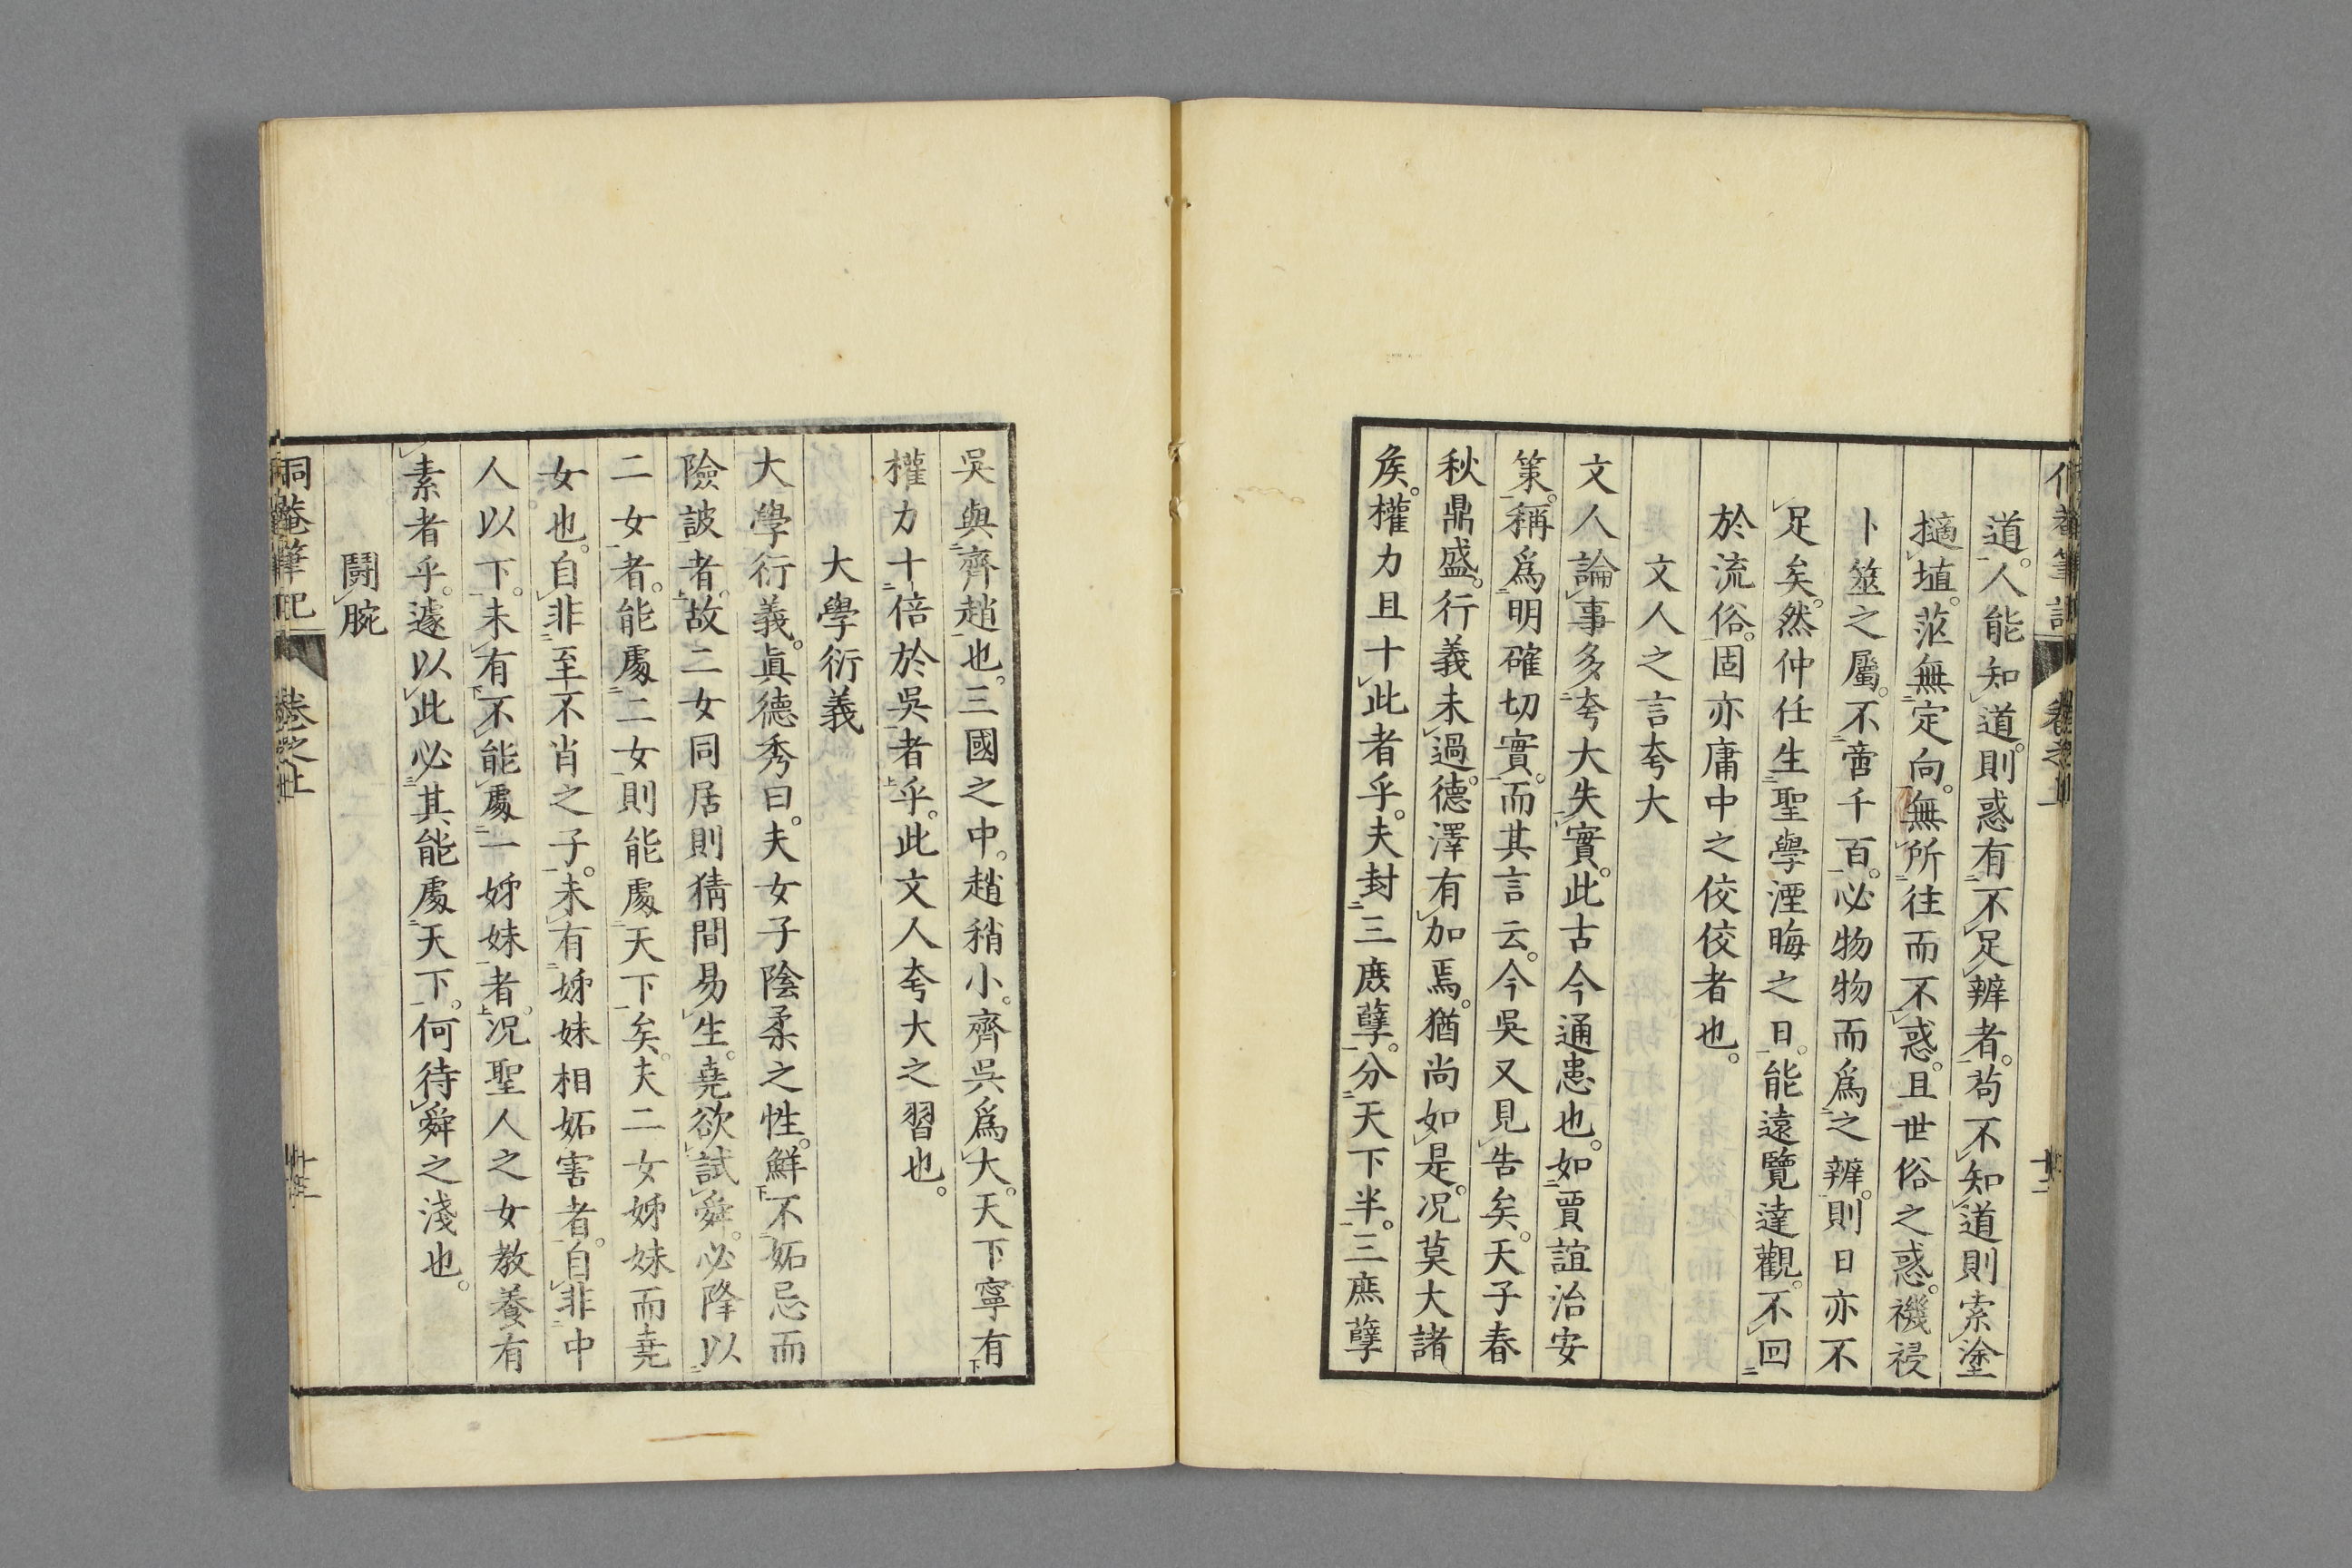 道。人能知道。則惑有不足辨者。苟不知道則索塗
擿埴。茫無定向。無所往而不惑。且世俗之惑。禨祲
卜筮之屬。不啻千百。必物物而爲之辨。則日亦不
足矣。然仲任生聖學湮晦之日。能遠覽達觀。不回
於流俗。固亦庸中之佼佼者也。
文人之言夸大
文人論事多夸大失實。此古今通患也。如賈誼治安
策。稱爲明確切實。而其言云。今吳又見告矣。天子春
秋鼎盛。行義未過。德澤有加焉。猶尚如是。况莫大諸
矦。權力且十此者乎。夫封三庶孽。分天下半。三庶孽
吳與齊趙也。三國之中。趙稍小。齊吳爲大。天下寧有
權力十倍於吳者乎。此文人夸大之習也。
大學衍義
大學衍義。眞德秀曰。夫女子陰柔之性。鮮不妬忌而
險詖者。故二女同居則猜間易生。堯欲試舜。必降以
二女者。能處二女則能處天下矣。夫二女姊妹而堯
女也。自非至不肖之子。未有姊妹相妬害者。自非中
人以下。未有不能處一姊妹者。况聖人之女教養有
素者乎。遽以此必其能處天下。何待舜之淺也。
鬪腕
侗菴筆記 卷之上